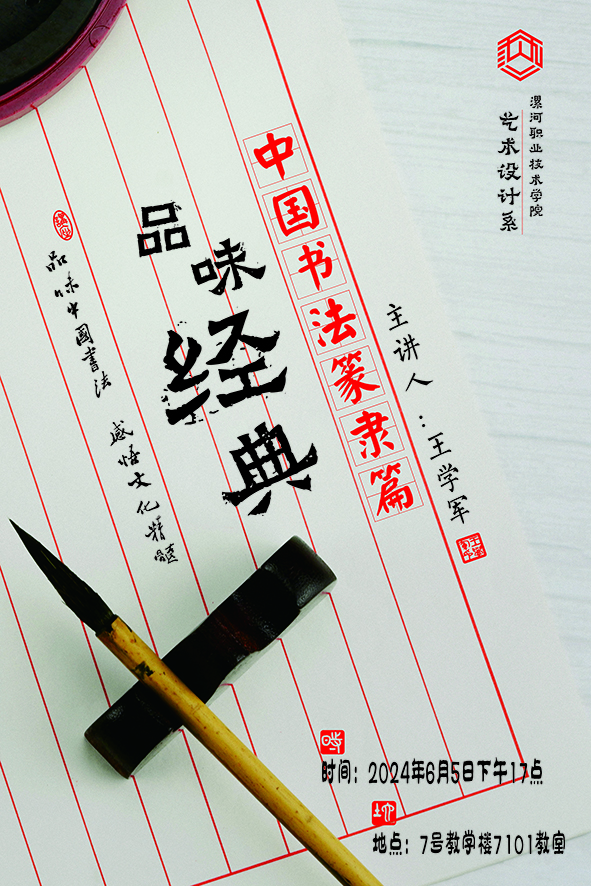 漯河职业技术学院
艺术设计系
中国书法篆隶篇
品味
经典
主讲人：王学军
品味中國書法
感悟文化精髓
时间：2024年6月5日下午17点
地点：7号教学楼7101教室